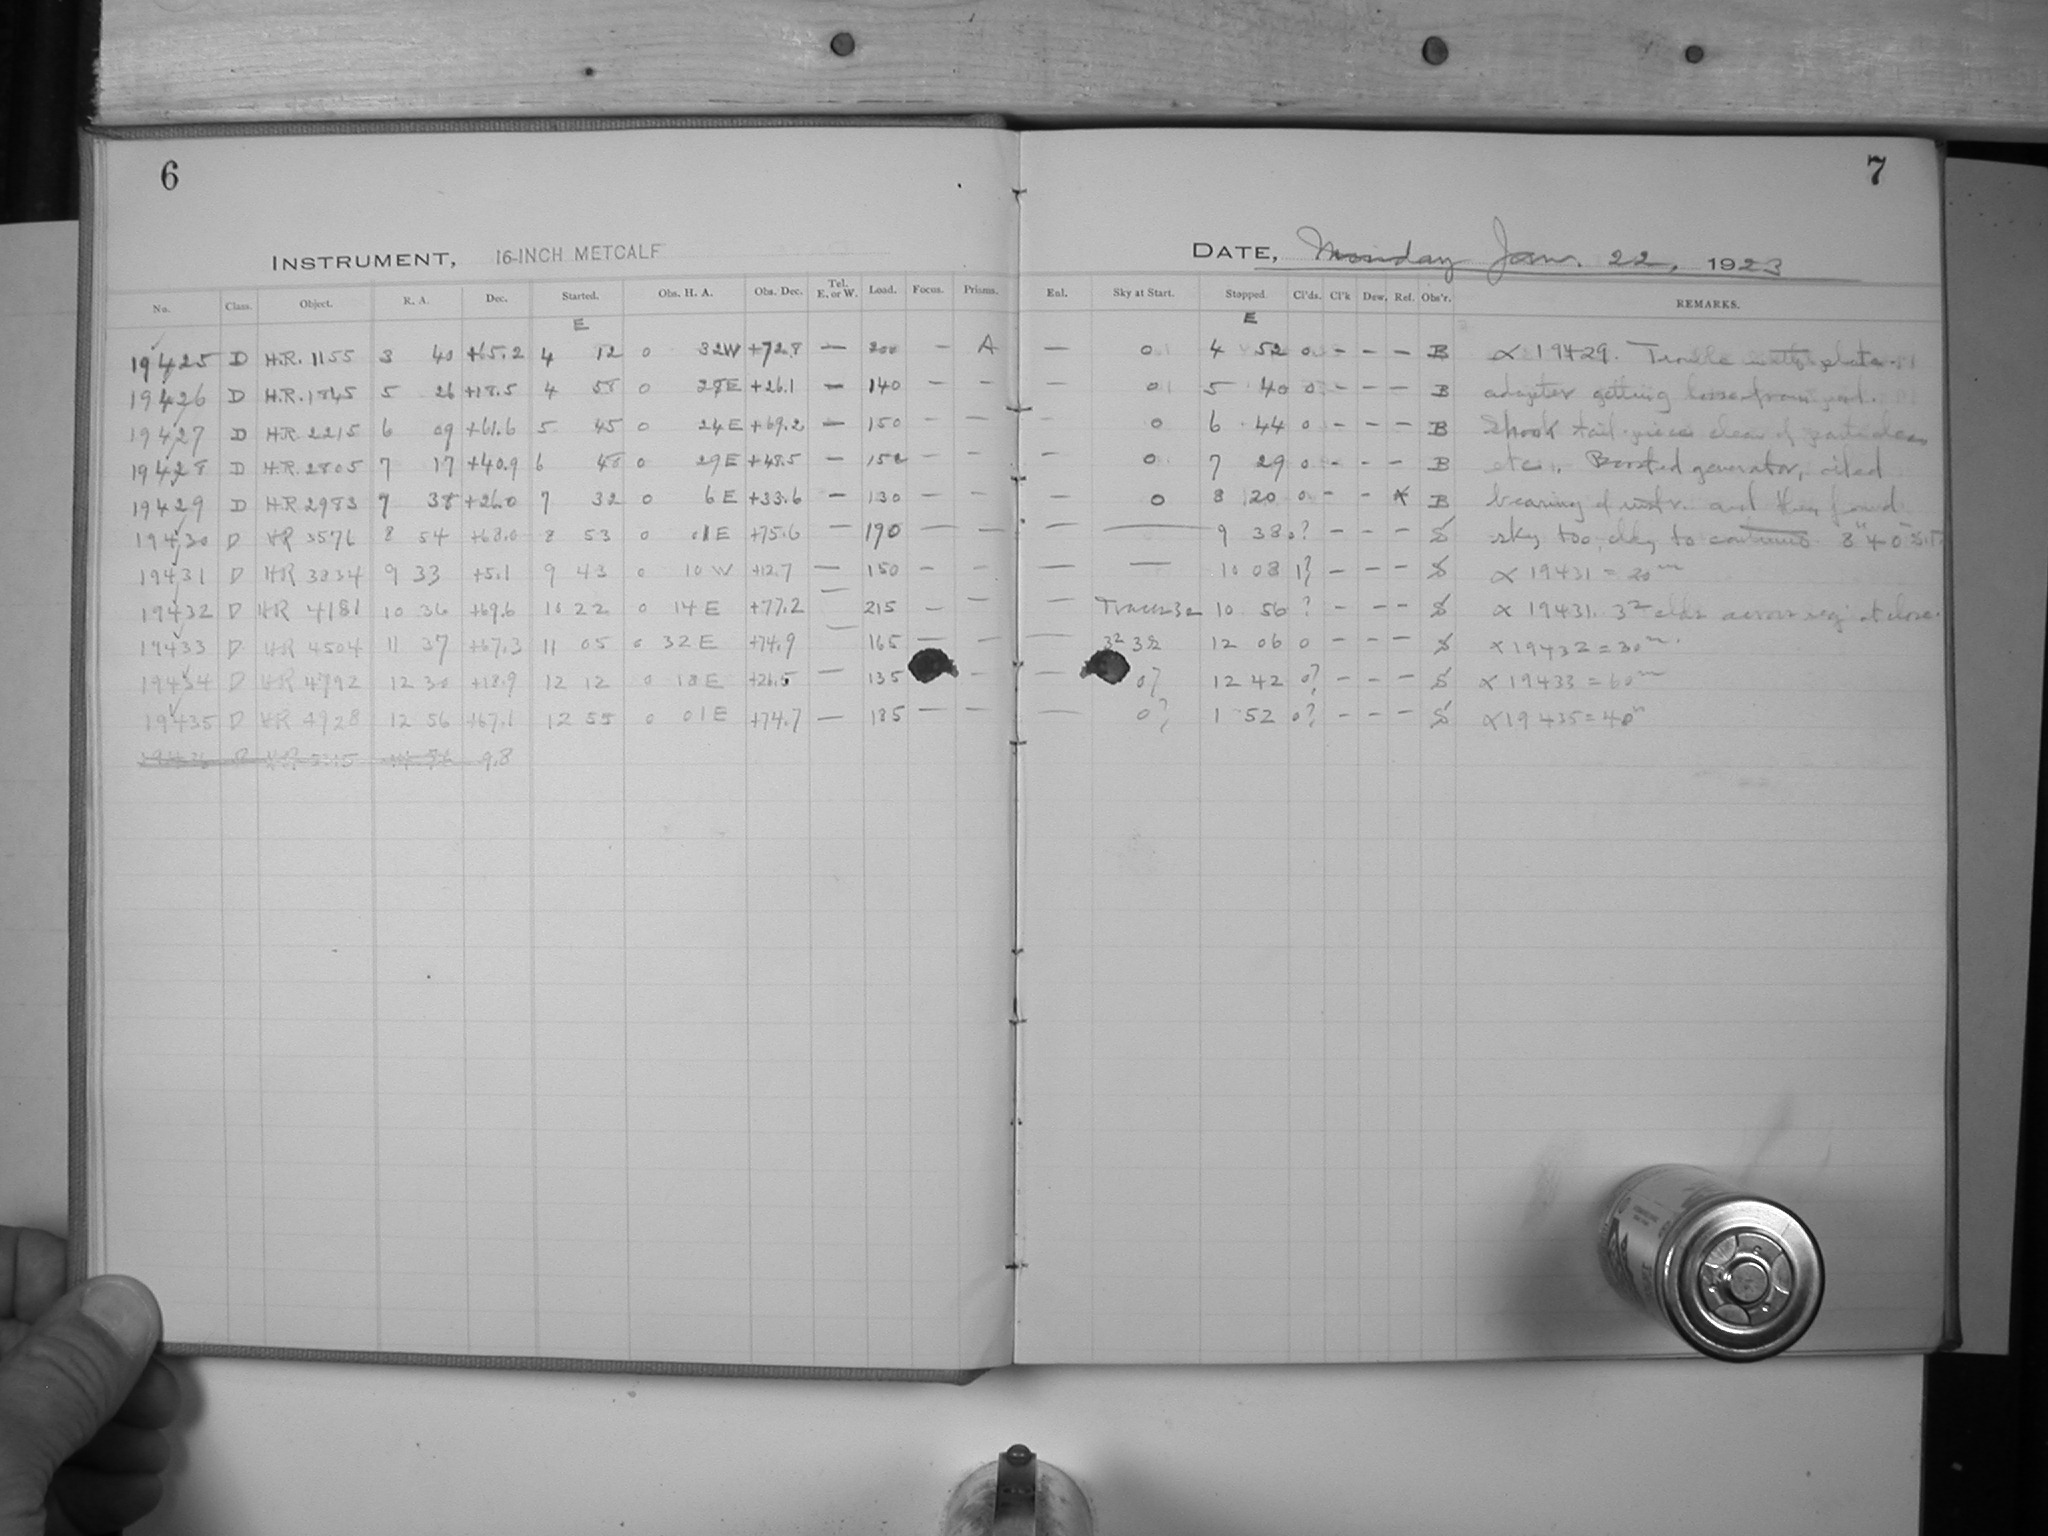 6
INSTRUMENT, 16-INCH METCALF
No. Class. Object. R. A. Dec. Started. Obs. H. A. Obs. Dec. Tel. E. or W. Load. Focus. Prisms.
E
19425 D H.R. 1155 3 40 +65.2 4 12 0 32W +72.8 — 200 — A
19426 D H.R. 1845 5 26 +18.5 4 58 0 28E +26.1 — 140 — —
19427 D H.R. 2215 6 09 +61.6 5 45 0 24E +69.2 — 150 — —
19428 D H.R. 2805 7 17 +40.9 6 48 0 29E +48.5 — 152 — —
19429 D H.R. 2983 7 38 +26.0 7 32 0 6E +33.6 — 130 — —
19430 D HR 3576 8 54 +68.0 8 53 0 01E +75.6 — 190 — —
19431 D HR 3834 9 33 +5.1 9 43 0 10W +12.7 — 150 — —
19432 D HR 4181 10 36 +69.6 10 22 0 14E +77.2 — 215 — —
19433 D HR 4504 11 37 +67.3 11 05 0 32E +74.9 — 165 — —
19434 D HR 4792 12 30 +18.9 12 12 0 18E +26.5 — 135 —
19435 D HR 4928 12 56 +67.1 12 55 0 01E +74.7 — 185 — —
9.8
7
DATE, Monday Jan. 22, 1923
Enl. Sky at Start. Stopped. Cl'ds. Cl'k Dew. Ref. Obs'r. REMARKS.
E
— 0 4 52 0 - - - B α 19429. Trouble with plate
— 0 5 40 0 - - - B adapter getting loose from
— 0 6 44 0 - - - B Shook tail-piece clear of particles
— 0 7 29 0 - - - B etc. Boosted generator, oiled
— 0 8 20 0 - - B bearing of instr. and then found
— — 9 38 0? - - - S sky too to continue
— — 10 08 1? - - - S α 19431 = 20m
10 56 ? - - - S α 19431. across reg. at close.
— 12 06 0 - - - S α 19432 = 30m.
— 0? 12 42 0? - - - S α 19433 = 60m
— 0? 1 52 0? - - - S α 19435 = 40m